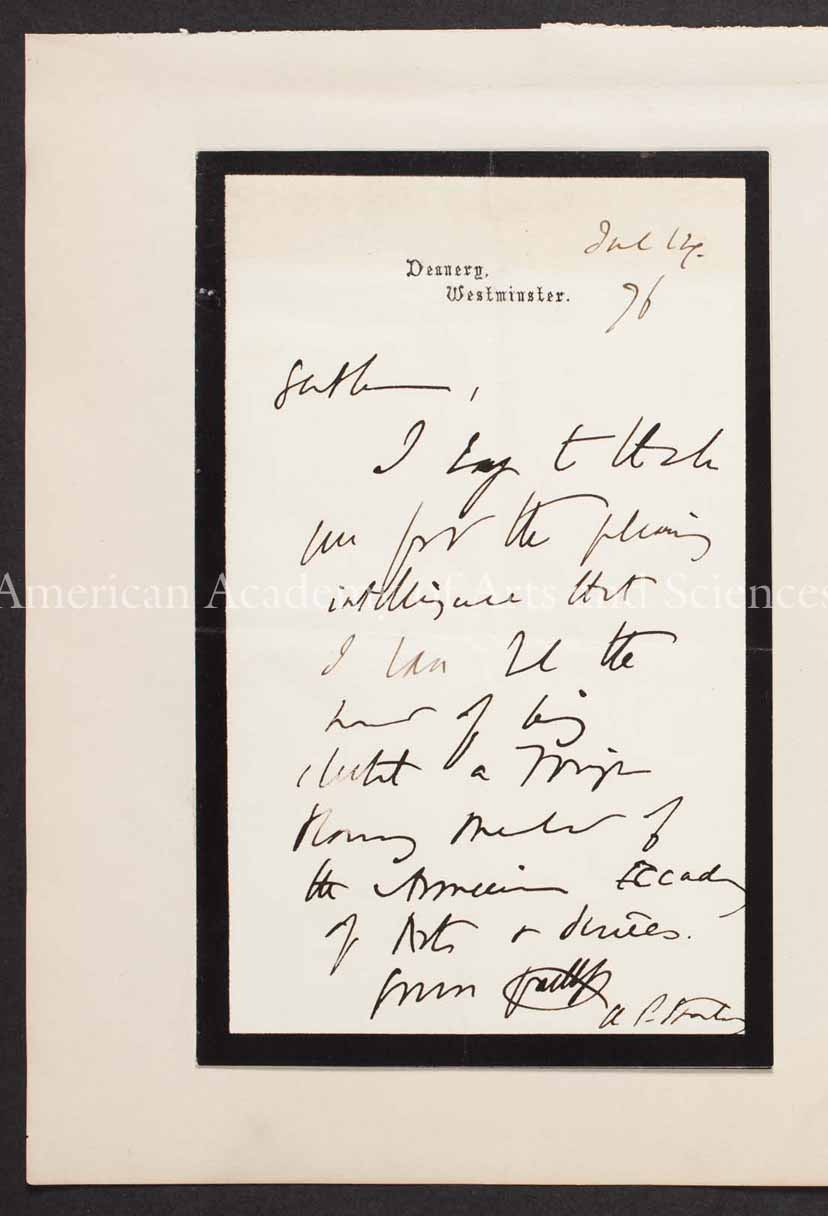 Jul 14.
Deanery,
Westminster.
76
Gentlemen,
I beg to thank
you for the pleasing
intelligence that
I have had the
honor of being
elected a Foreign
Honorary Member of
the American Academy
of Arts & Sciences.
Yours faithfully
A. P. Stanley
American Academy of Arts and Sciences